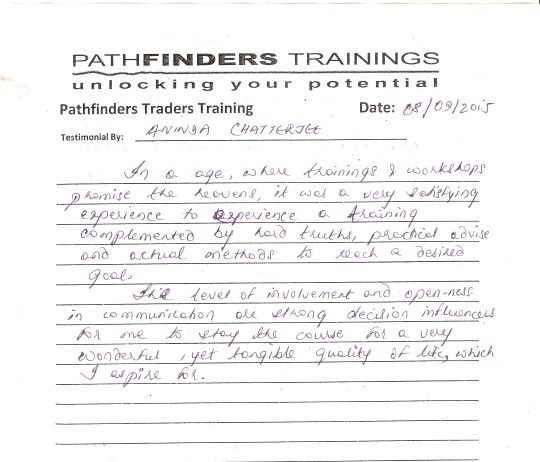 PATHFINDERS TRAININGS
unlocking your potential
Pathfinders Traders Training Date: 08/09/2015
Testimonial By: ANINDA CHATTERJEE
In a age, where trainings & workshops
promise the heavens, it was a very satisfying
experience to experience a training
complemented by hard truths, practical advise
and actual methods to reach a desired
goal.
The level of involvement and open-ness
in communication are strong decision influencers
for me to stay the course for a very
wonderful, yet tangible quality of life, which
I aspire for.